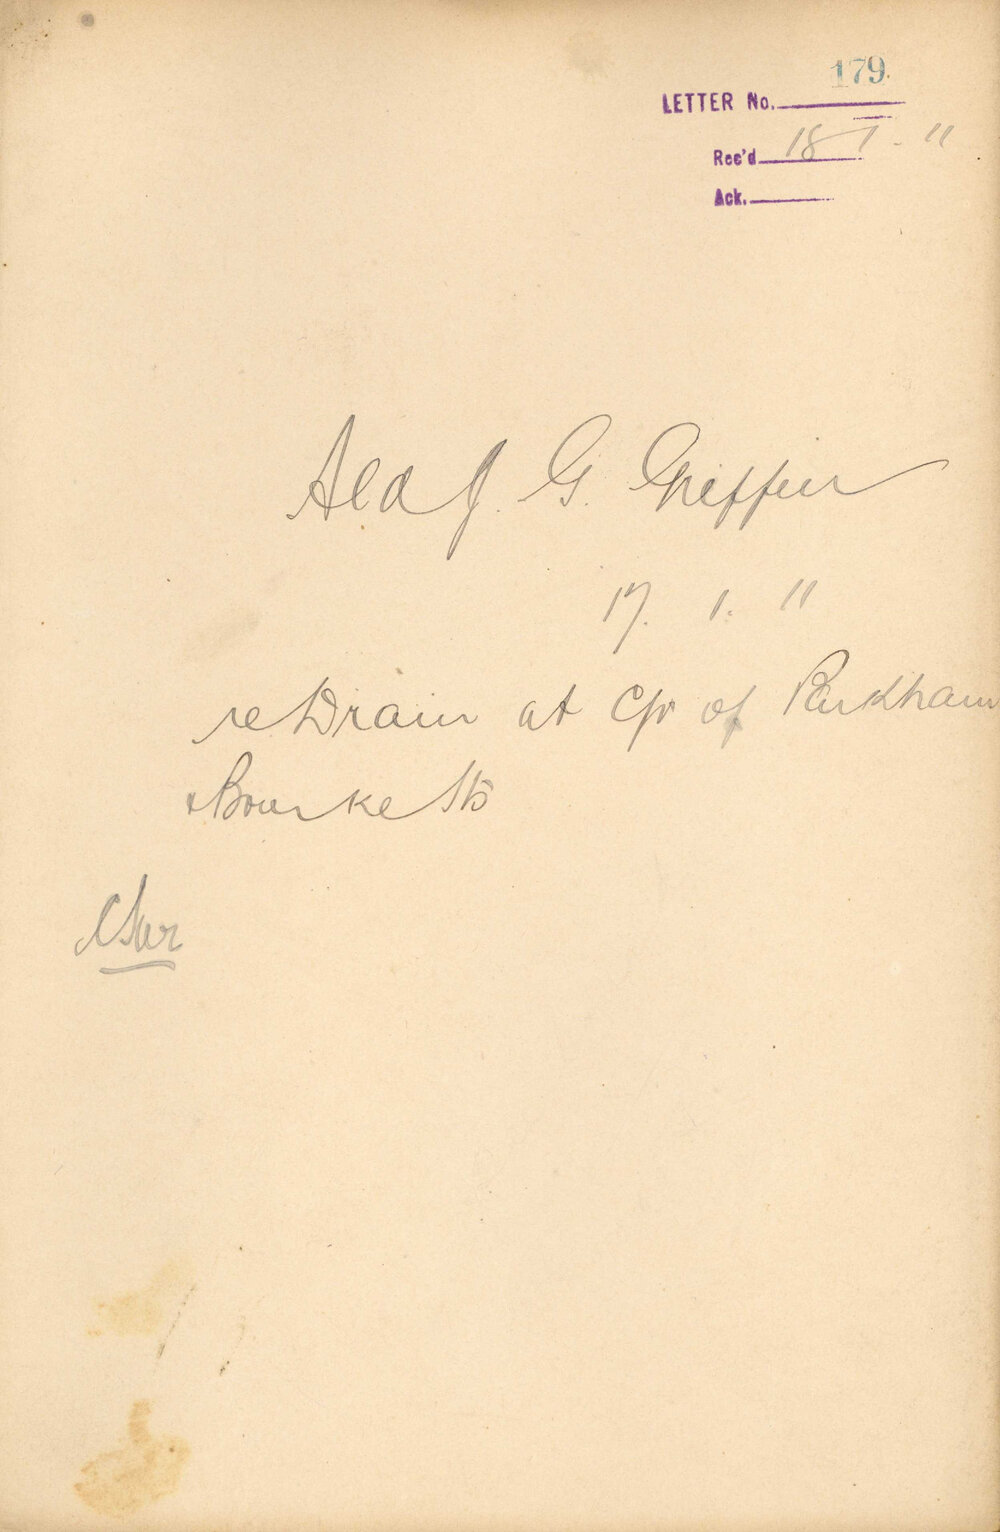 179.
LETTER No.
Rec'd 18-1-11
Ack.
Ald J. G. Griffin
17. 1. 11
re Drain at C/r of Parkham
& Bourke Sts